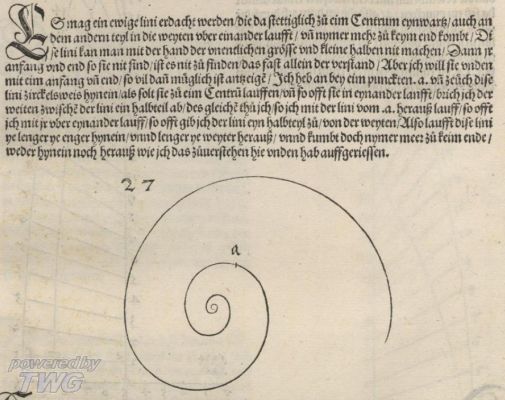 ES mag ein ewige lini erdacht werden/ die da stettiglich zů eim Centrum eynwartz/ auch an
dem andern teyl in die weyten vber einander laufft/ vñ nymer mehr zů keym end kombt/ Di
se lini kan man mit der hand der vnentlichen grösse vnd kleine halben nit machen/ Dann jr
anfang vnd end so sie nit sind/ ist es nit zů finden/ das fast allein der verstand/ Aber jch will sie vnden
mit eim anfang vñ end/ so vil dañ müglich ist antzeigẽ/ Jch heb an bey eim puncktẽ .a. vñ zeüch dise
lini zirckelsweis hynein/ als solt sie zů eim Centrũ lauffen/ vñ so offt sie in eynander laufft/ brich jch der
weiten zwischẽ der lini ein halbteil ab/ des gleichẽ thů jch so jch mit der lini vom .a. herauß lauff/ so offt
jch mit jr vber eynander lauff/ so offt gib jch der lini eyn halbteyl zů/ von der weyten/ Also laufft dise lini
ye lenger ye enger hynein/ vnnd lenger ye weyter herauß/ vnnd kumbt doch nymer meer zů keim ende/
weder hynein noch herauß wie jch das zůuerstehen hie vnden hab auffgeriessen.
27
a
powered by
TWG